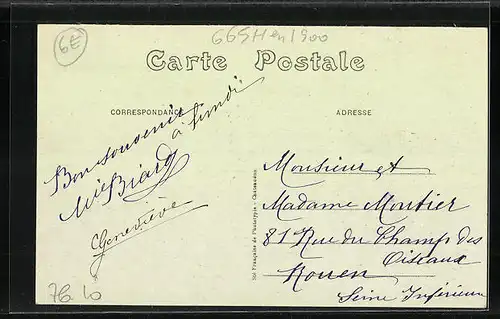 6€
66SH en 1900
Carte Postale
CORRESPONDANCE
ADRESSE
Bon souvenir
à lundi
Biard
Geneviève
Monsieur et
Madame Moutier
81 Rue du Champ des
Oiseaux
Rouen
Seine Inférieure
Sté Française de Phototypie - Châteauneuf
76.10